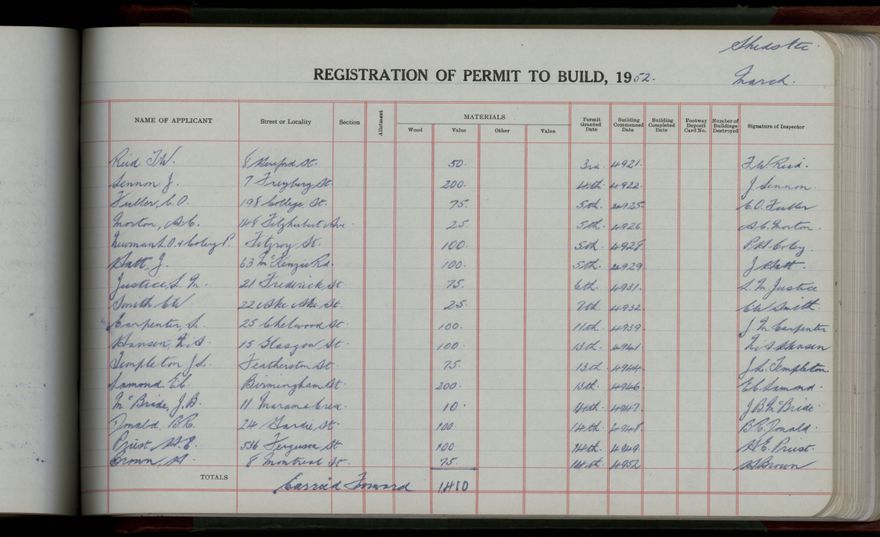 Sheds etc.
REGISTRATION OF PERMIT TO BUILD, 1952.
March.
NAME OF APPLICANT Street or Locality Section Allotment MATERIALS Permit Granted Date Building Commenced Date Building Completed Date Footway Deposit Card No. Number of Buildings Destroyed Signature of Inspector
Wood Value Other Value
Reid T.W. 8 St. 50. 3rd. 4921. T.W. Reid.
Lennon J. 7 Freyburg St. 200. 4th. 4922. J. Lennon
Fuller, C.O. 198 College St. 75. 5th. 4925 C.O. Fuller
Morton, A.C. 148 Fitzherbert Ave. 25. 5th. 4926 A.C. Morton
Newman L.O. & Coley P. Fitzroy St. 100. 5th. 4928 P.H. Coley
Hatt J. 63 McKenzie Rd. 100. 5th 4929 J. Hatt
Justice, L. M. 21 Frederick St. 75. 6th. 4931. L. M. Justice
Smith C.W. 22 Ake Ake St. 25 7th. 4932. C.W. Smith.
Carpenter, L. 25 Chelwood St. 100. 11th. 4939. J. M. Carpenter
Hansen, N. A. 15 Glasgow St. 100. 13th. 4941. N. A. Hansen
Templeton J.L. Featherston St. 75. 13th. 4944. J.L. Templeton.
Lamond E.C. Birmingham St. 200. 13th. 4946. E.C. Lamond.
McBride, J.B. 11 Marama Cres. 10. 14th. 4947. J.B. McBride.
Donald, B.R. 24 St. 100. 14th. 4948. B.R. Donald.
Priest, H.E. 536 Ferguson St. 100 14th. 4949. H.E. Priest.
Brown, A. 8 Montreal St. 75. 14th. 4952 A. Brown
TOTALS Carried Forward 1410